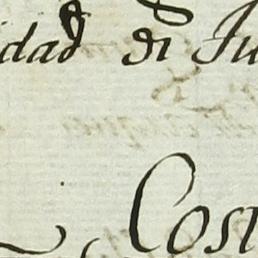 idad di Ju
Cost